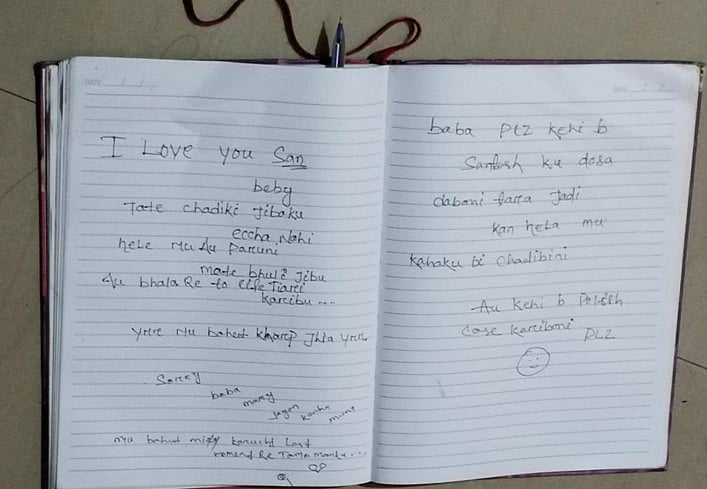 I Love you San
beby
Tate chadiki Jibaku
eccha Nahi
hele Mu Au Paruni
mate bhuli Jibu
Au bhala Re to life Tiarei
karibu ...
yrrr Mu bohut kharap Jhia yrrr
Sorry
baba
mamy
Jagan
kanha
muna
mu bohut missy karuchi Last
momend Re Tama mantu...
baba PLZ kehi b
Santosh ku dosa
daboni tara Jadi
kan hela mu
kahaku bi chadibini
Au kehi b
case kariboni PLZ